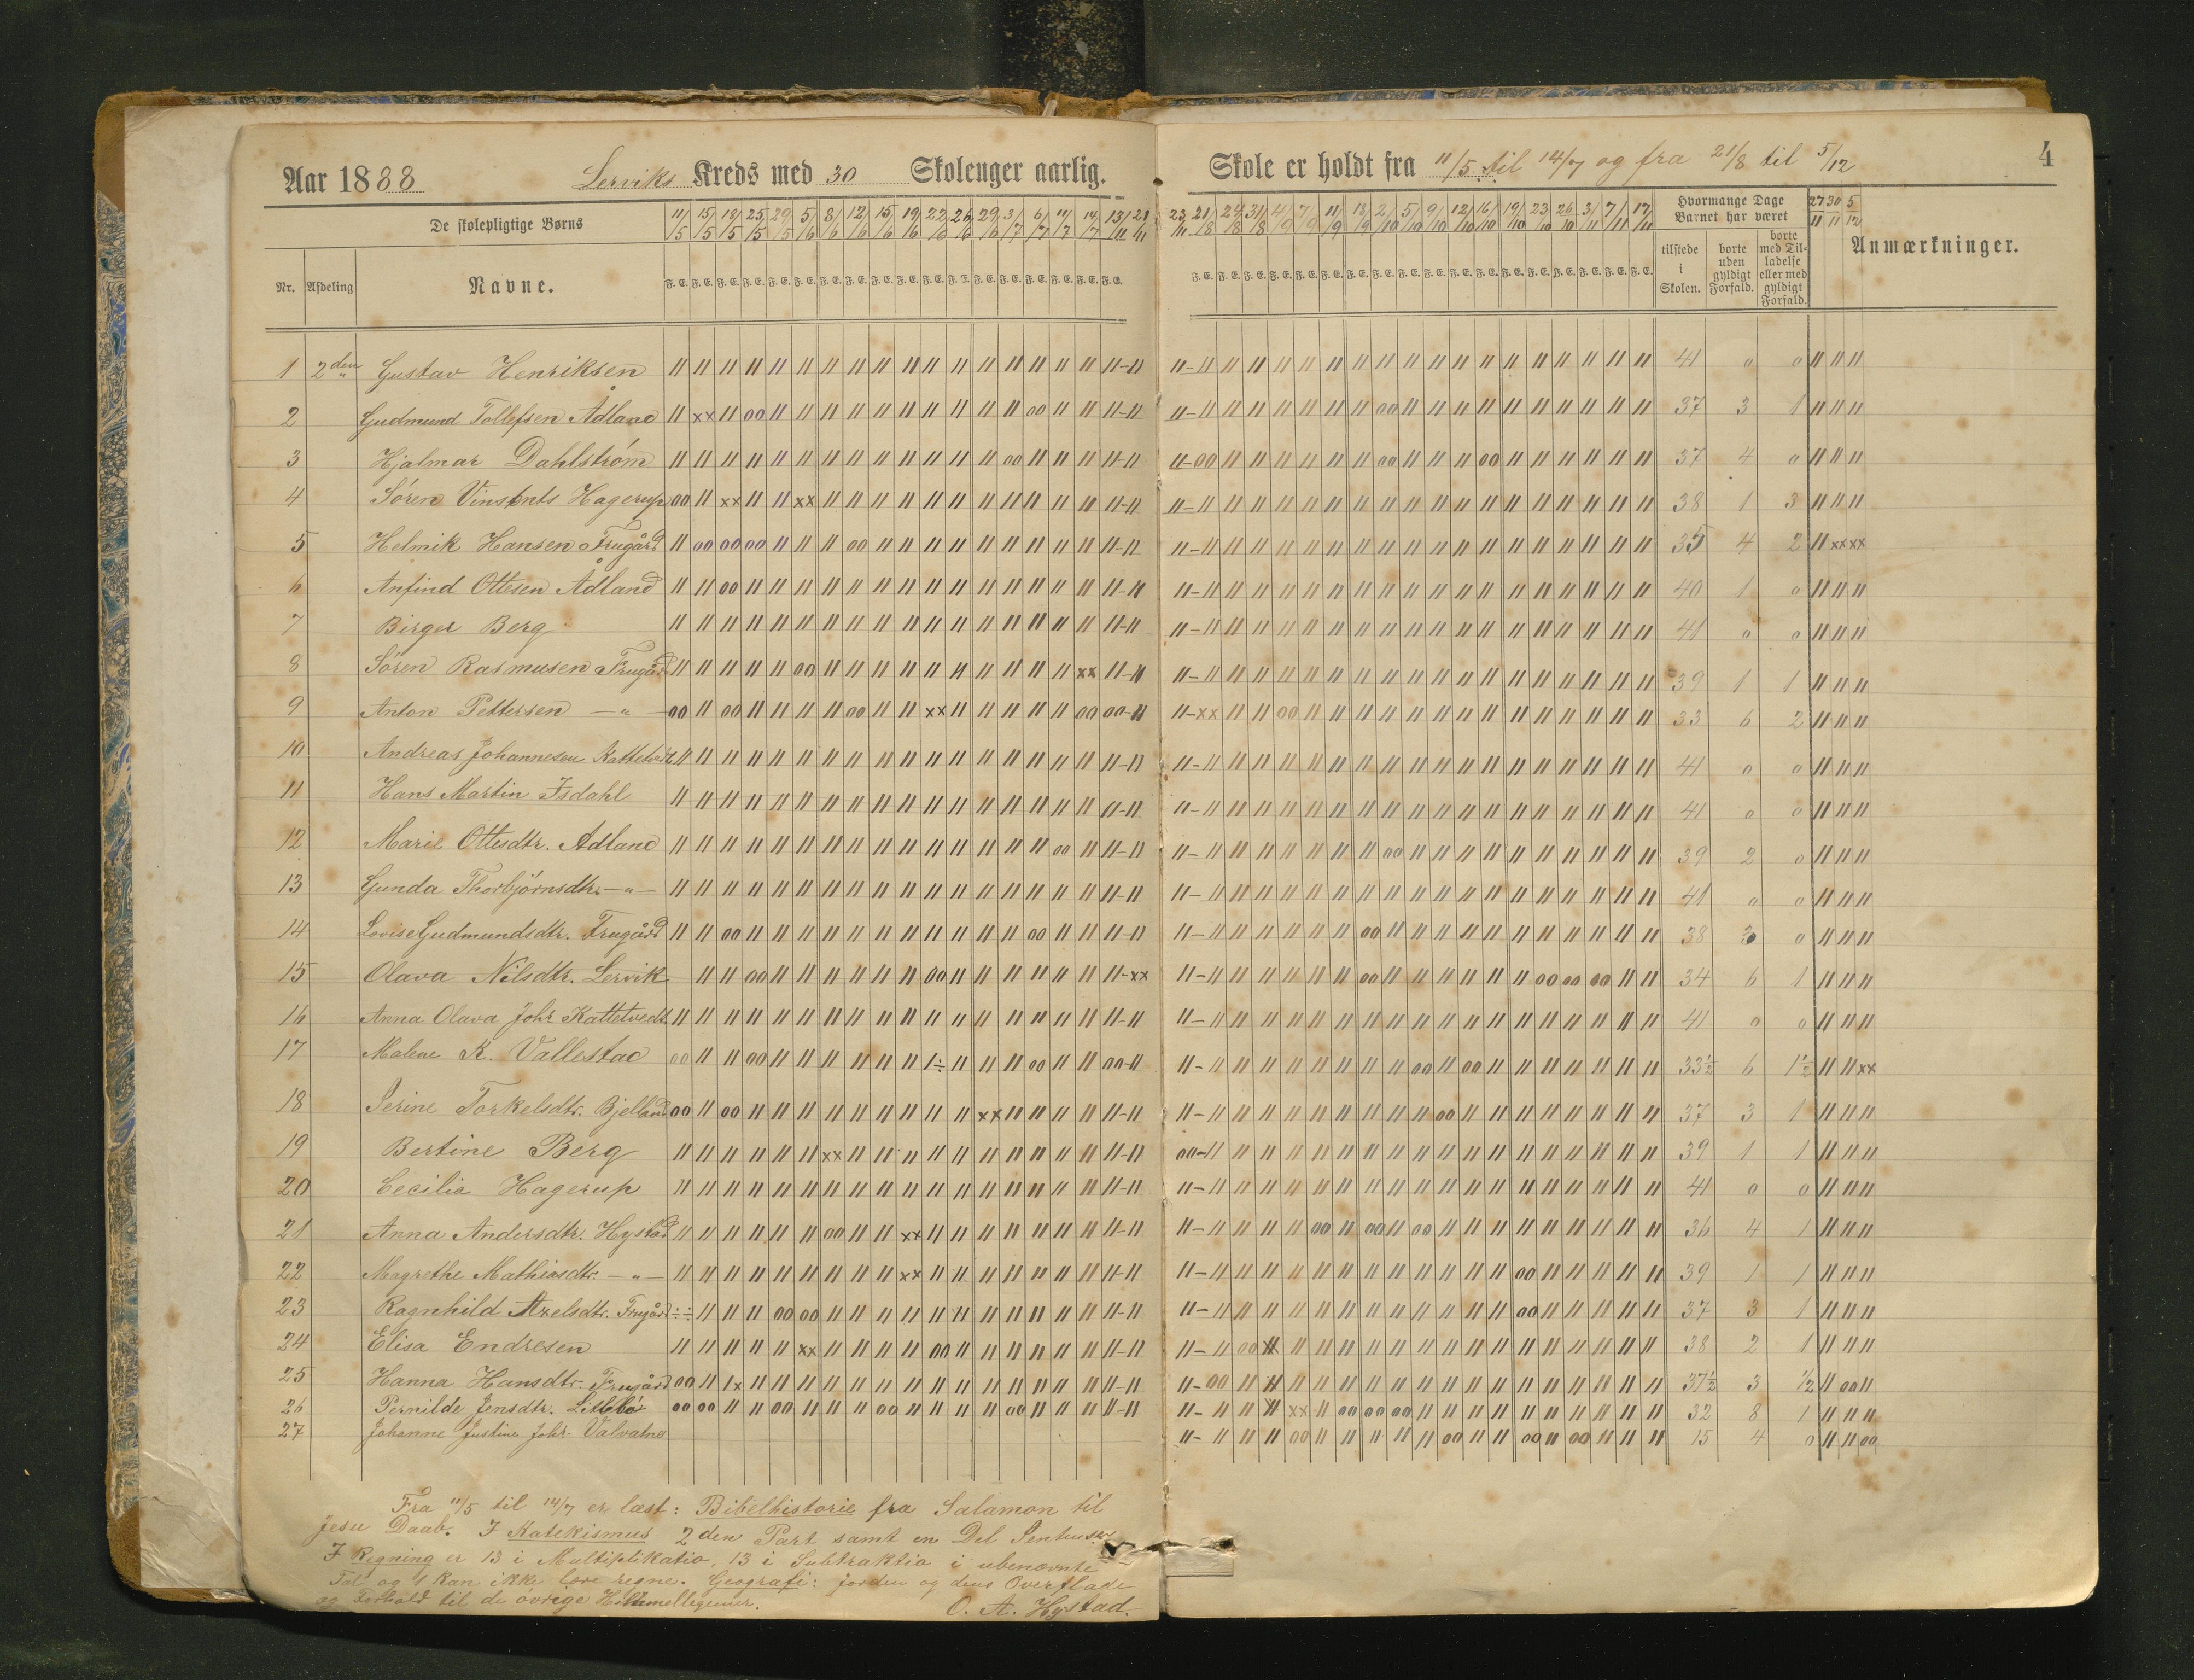 Aar 1888 Lerviks Kreds med 30 Skolenger aarlig.
Skole er holdt fra 11/5 til 14/7 og fra 21/8 til 5/12
4
De skolepligtige Børns
11/5 15/5 18/5 25/5 29/5 5/6 8/6 12/6 15/6 19/6 22/6 26/6 29/6 3/7 6/7 11/7 14/7 13/11 21/11
23/11 21/8 24/8 31/8 4/9 7/9 11/9 18/9 2/10 5/10 9/10 12/10 16/10 19/10 23/10 26/10 3/11 7/11 17/11
Hvormange Dage Barnet har været
27/11 30/11 5/12
Anmærkninger.
Nr. Afdeling Navne.
F. E. F. E. F. E. F. E. F. E. F. E. F. E. F. E. F. E. F. E. F. E. F. E. F. E. F. E. F. E. F. E. F. E. F. E.
tilstede i Skolen.
borte uden gyldigt Forfald.
borte med Tilladelse eller med gyldigt Forfald.
1 2den Gustav Henriksen 41 0 0
2 Gudmund Tollefsen Ådland 37 3 1
3 Hjalmar Dahlstrøm 37 4 0
4 Søren Vinsents Hagerup 38 1 3
5 Helmik Hansen Frugård 35 4 2
6 Anfind Ottesen Ådland 40 1 0
7 Birger Berg 41 0 0
8 Søren Rasmusen Frugård 39 1 1
9 Anton Pettersen — " — 33 6 2
10 Andreas Johannesen 41 0 0
11 Hans Martin Isdahl 41 0 0
12 Marie Ottesdtr. Adland 39 2 0
13 Gunda Thorbjørnsdtr. — " — 41 0 0
14 Lovise Gudmundsdtr. Frugård 38 3 0
15 Olava Nilsdtr. Lervik 34 6 1
16 Anna Olava Johr Kattetvedt 41 0 0
17 Malene K. Vallestad 33½ 6 1½
18 Serine Torkelsdtr. Bjelland 37 3 1
19 Bertine Berg 39 1 1
20 Cecilia Hagerup 41 0 0
21 Anna Andersdtr. Hystad 36 4 1
22 Magrethe Mathiasdtr. — " — 39 1 1
23 Ragnhild Axelsdtr. Frugård 37 3 1
24 Elisa Endresen 38 2 1
25 Hanna Hansdtr. Frugård 37½ 3 ½
26 Pernilde Jensdtr. Littlebø 32 8 1
27 Johanne Justine Johr. Valvatne 15 4 0
Fra 11/5 til 14/7 er læst: Bibelhistorie fra Salamon til
Jesu Daab. I Katekismus 2den Part samt en Del
I Regning er 13 i Multiplikatio, 13 i Subtraktio i ubenævnte
Tal og 1 kan ikke lære regne. Geografi: Jorden og dens Overflade
og Forhold til de øvrige Himmellegemer.
O. A. Hystad.